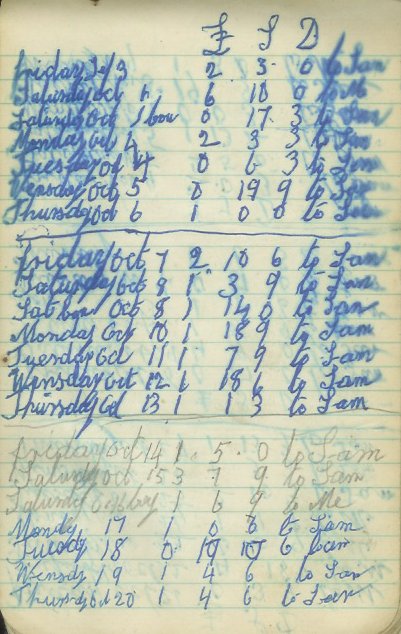 £ S D
Friday 3 2 3 0 to Sam
Saturday Oct 1 6 10 0 to Me
Saturday Oct 1 box 0 17 3 to Sam
Monday Oct 4 2 3 3 to Sam
Tuesday Oct 4 0 6 3 to Sam
Wensday Oct 5 0 19 9 to Sam
Thursday Oct 6 1 0 0 to Sam
Friday Oct 7 2 10 6 to Sam
Saturday Oct 8 1 3 9 to Sam
Sat box Oct 8 1 14 0 to Sam
Monday Oct 10 1 18 9 to Sam
Tuesday Oct 11 1 7 9 to Sam
Wensday Oct 12 1 18 6 to Sam
Thursday Oct 13 1 1 3 to Sam
Friday Oct 14 1 5 0 to Sam
Saturday Oct 15 3 7 9 to Sam
Saturday 1 6 9 to Me
Monday 17 1 0 6 to Sam
Tuesday 18 0 19 10 to Sam
Wensday 19 1 4 6 to Sam
Thursday Oct 20 1 4 6 to Sam